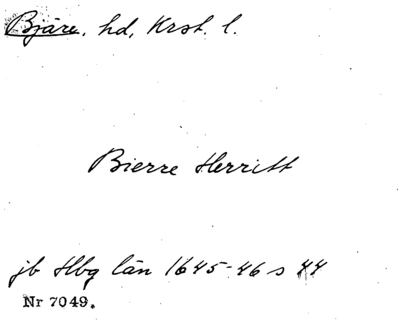 Bjäre, hd, Krst. l.
Bierre Herritt
jb Hbg län 1645-46 s 44
Nr 7049.